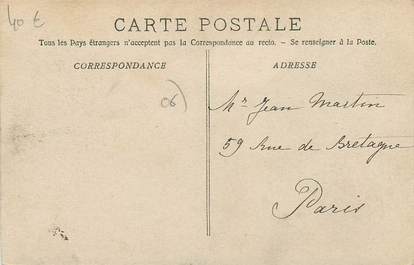 40 €
CARTE POSTALE
Tous les Pays étrangers n'acceptent pas la Correspondance au recto. - Se renseigner à la Poste.
CORRESPONDANCE
ADRESSE
06)
Mr Jean Martin
59 Rue de Bretagne
Paris